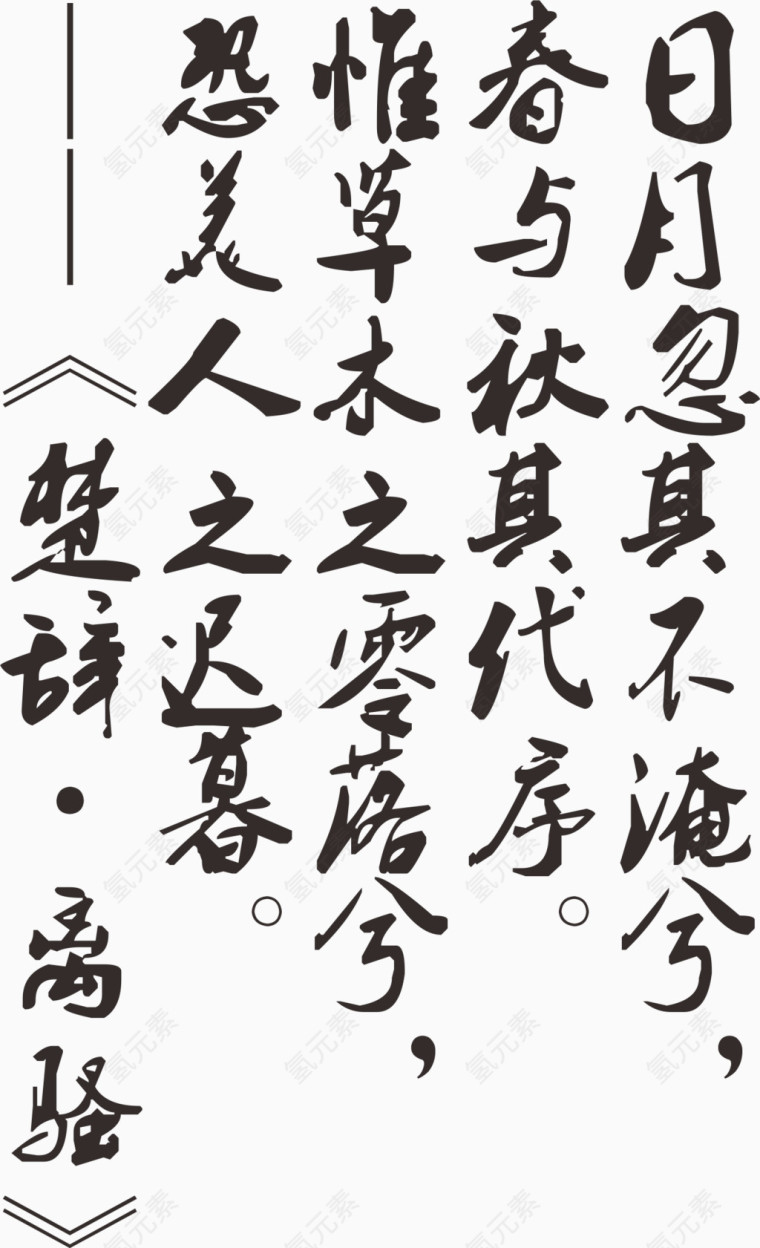 日月忽其不淹兮，
春与秋其代序。
惟草木之零落兮，
恐美人之迟暮。
——《楚辞·离骚》
氢元素